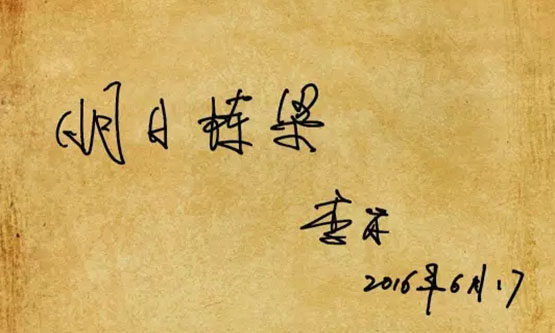 明日栋梁
2016年6月17